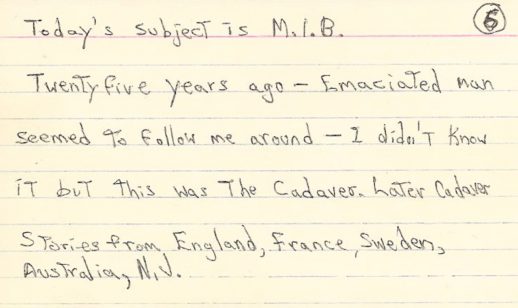 Today's subject is M.I.B. 6
Twenty five years ago – Emaciated man
seemed to follow me around – I didn't know
it but this was The Cadaver. Later Cadaver
Stories from England, France, Sweden,
Australia, N.J.